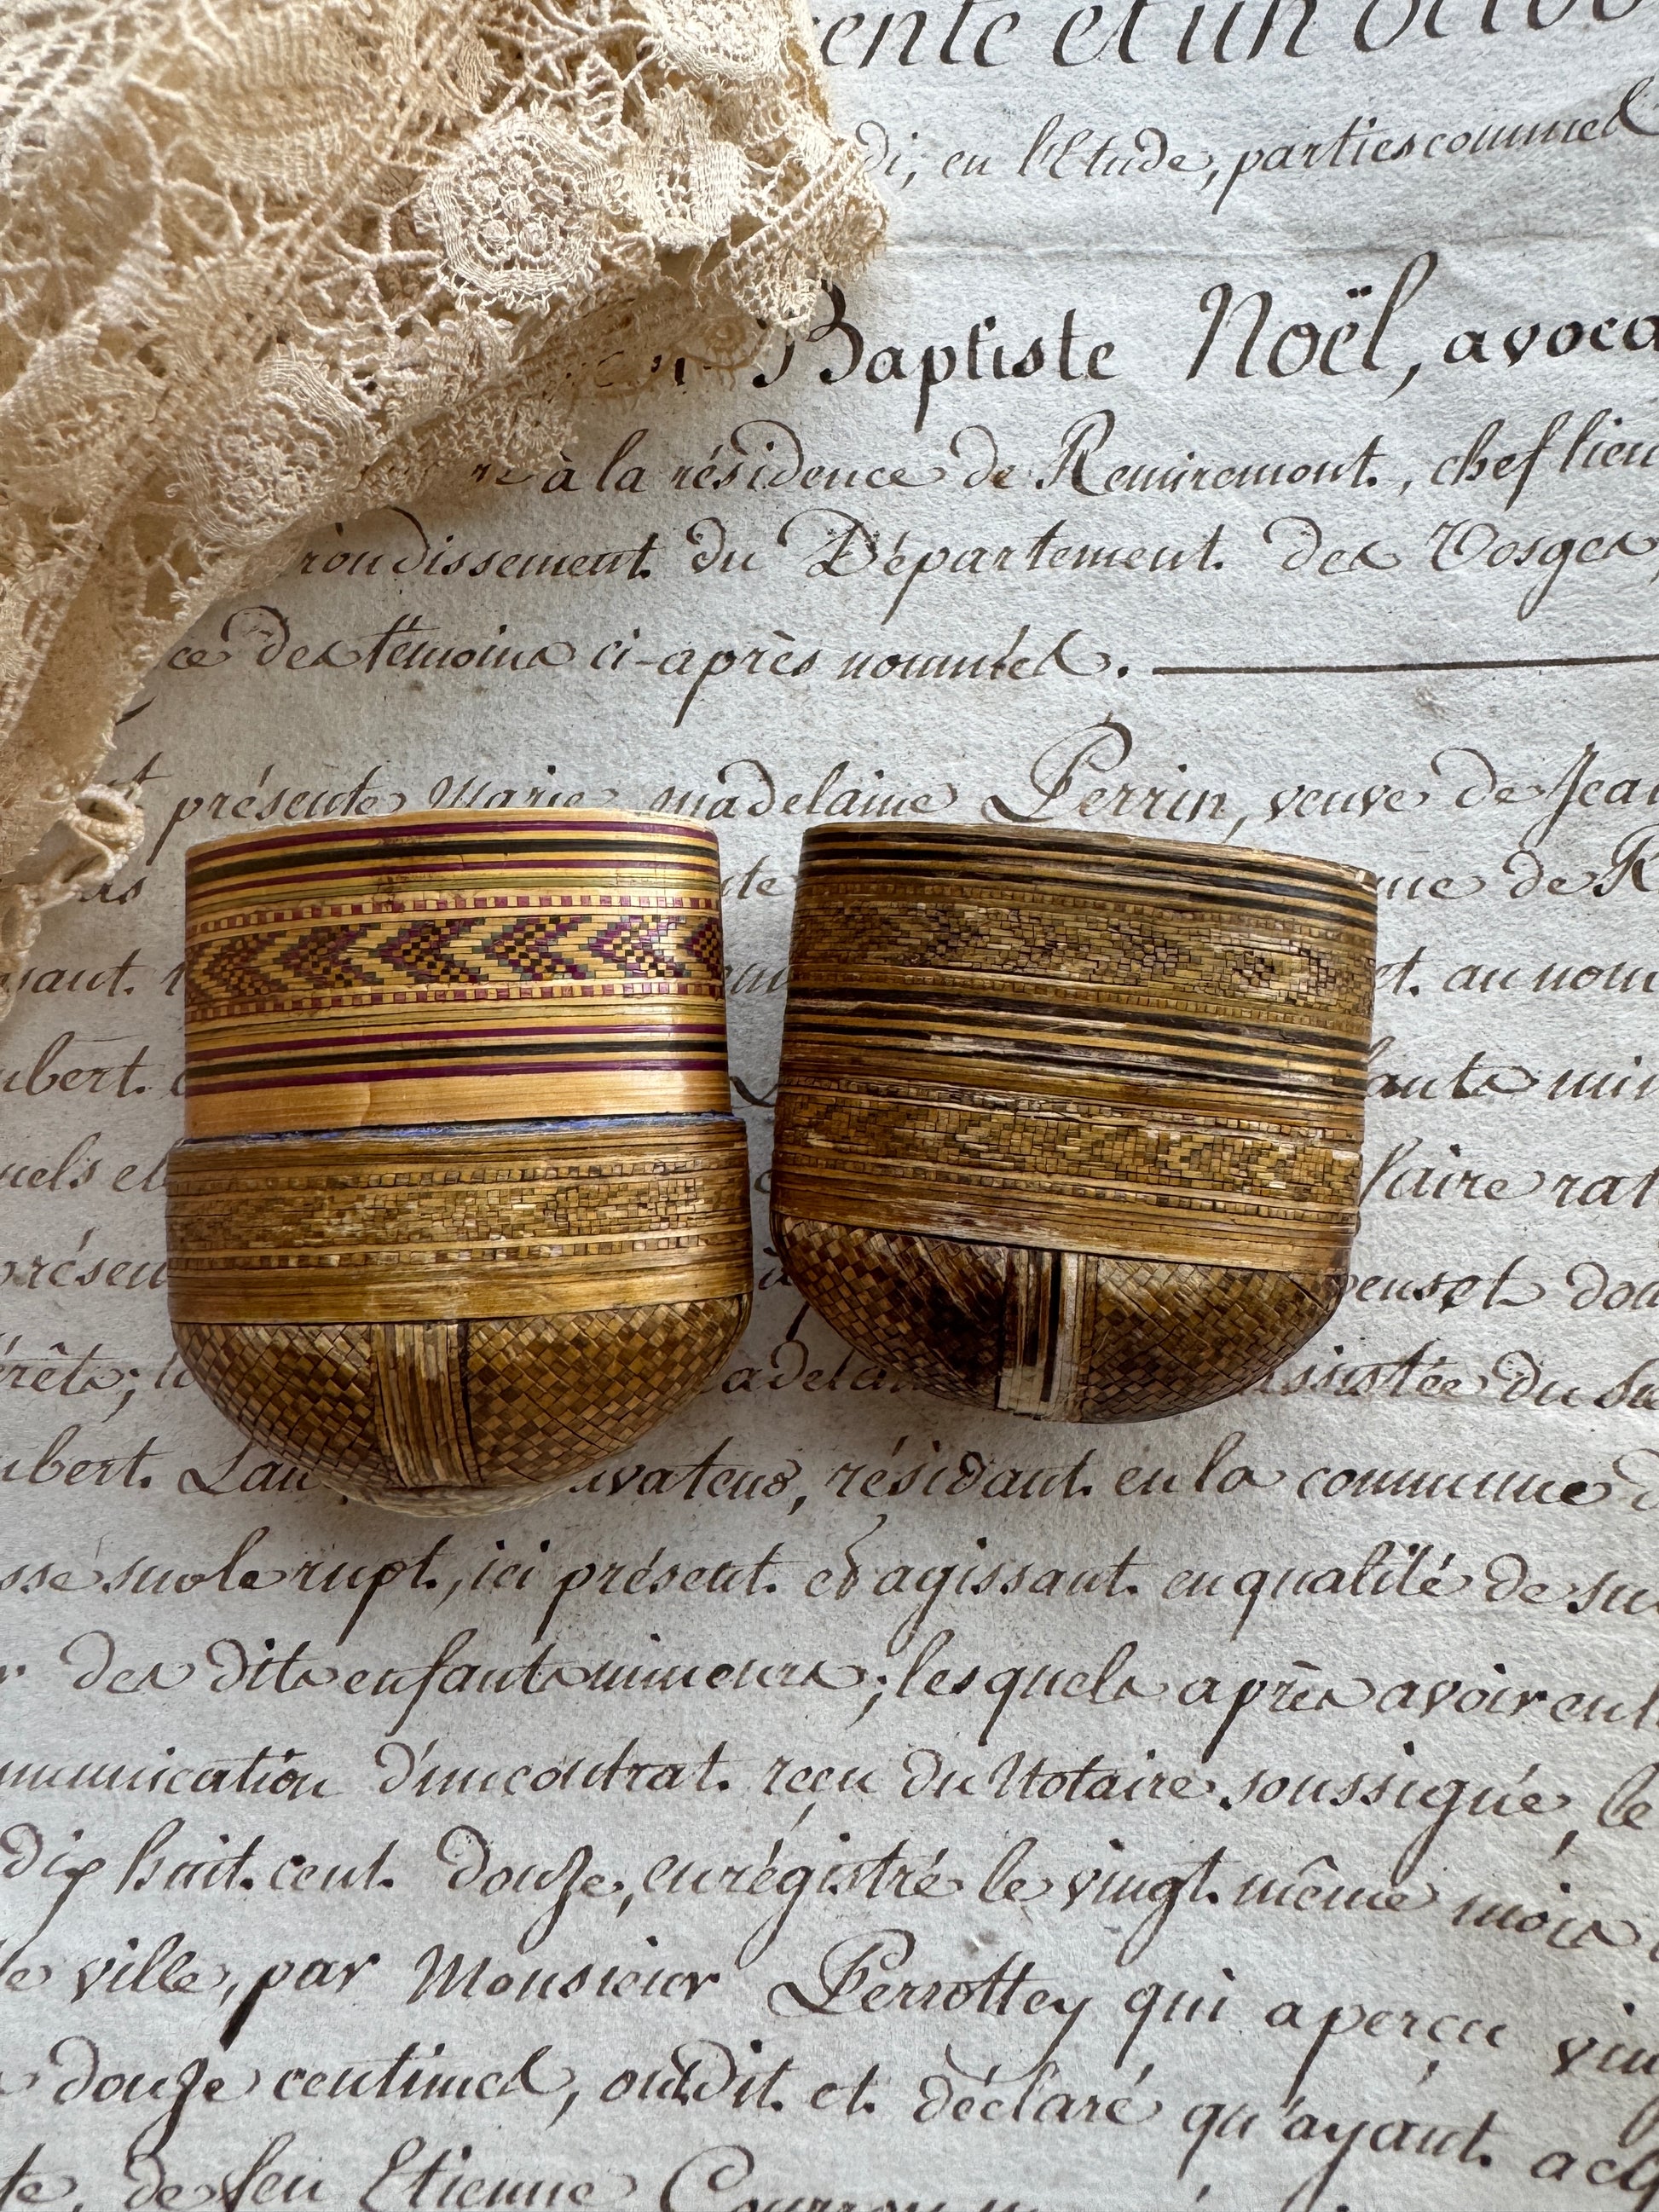 ente et un octo
di, en l'Etude, parties comme
Baptiste Noël, avoca
à la résidence de Remiremont, chef lieu
rondissement du Département des Vosges,
ce des témoins ci-après nommés.
présente Marie madelaine Perrin, veuve de Jean
te ne de R
sant et. au nom
ubert. ante min
uels et faire rat
présen
érêts; adelai ssistée du su
ubert. Lau vateur, résidant en la commune d
sse sur le rupt, ici présent et agissant en qualité de su
des dits enfants mineurs; lesquels après avoir eu
mmunication d'un contrat reçu du Notaire soussigné, le
dix huit cent douze, enrégistré le vingt même mois
le ville, par Monsieur Perrottey qui a perçu vin
douze centimes, ont dit et déclaré qu'ayant acq
te, de feu Etienne